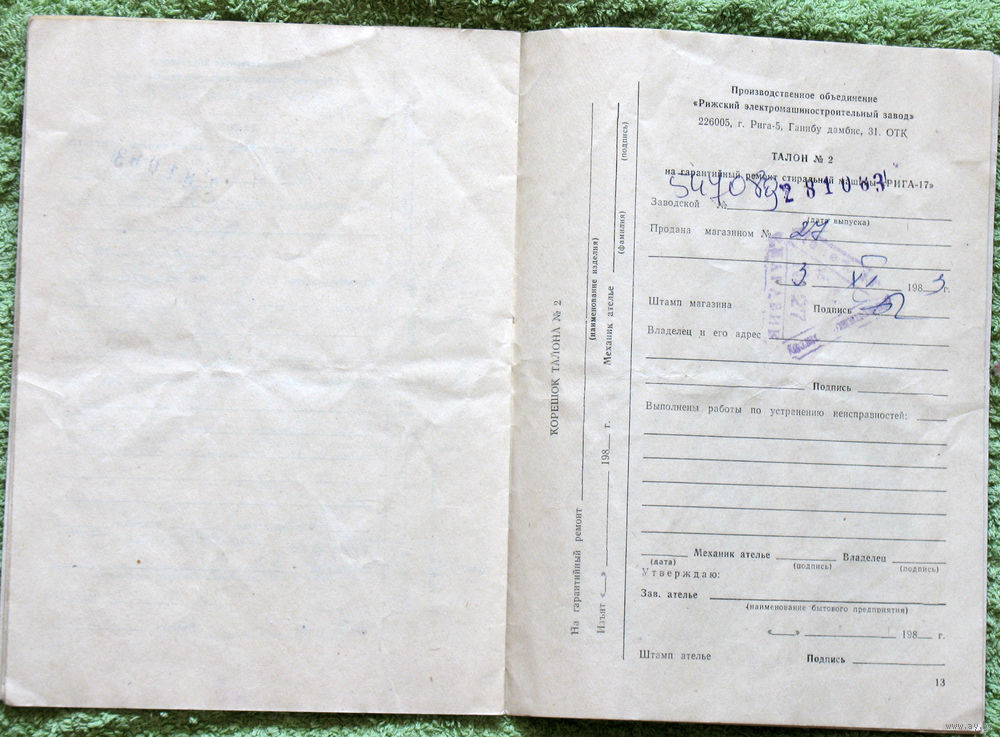 Производственное объединение
«Рижский электромашиностроительный завод»
226005, г. Рига-5, Ганибу дамбис, 31. ОТК
ТАЛОН № 2
на гарантийный ремонт стиральной машины «РИГА-17»
547089 281083
Заводской №
(дата выпуска)
Продана магазином № 27
3 XI 1983 г.
Штамп магазина Подпись
27
Владелец и его адрес
Подпись
Выполнены работы по устранению неисправностей:
Механик ателье Владелец
(дата) (подпись) (подпись)
Утверждаю:
Зав. ателье
(наименование бытового предприятия)
«__» 198__ г.
Штамп ателье Подпись
13
КОРЕШОК ТАЛОНА № 2
На гарантийный ремонт
(наименование изделия)
Изъят «__» 198__ г. Механик ателье
(фамилия) (подпись)
www.ay.by